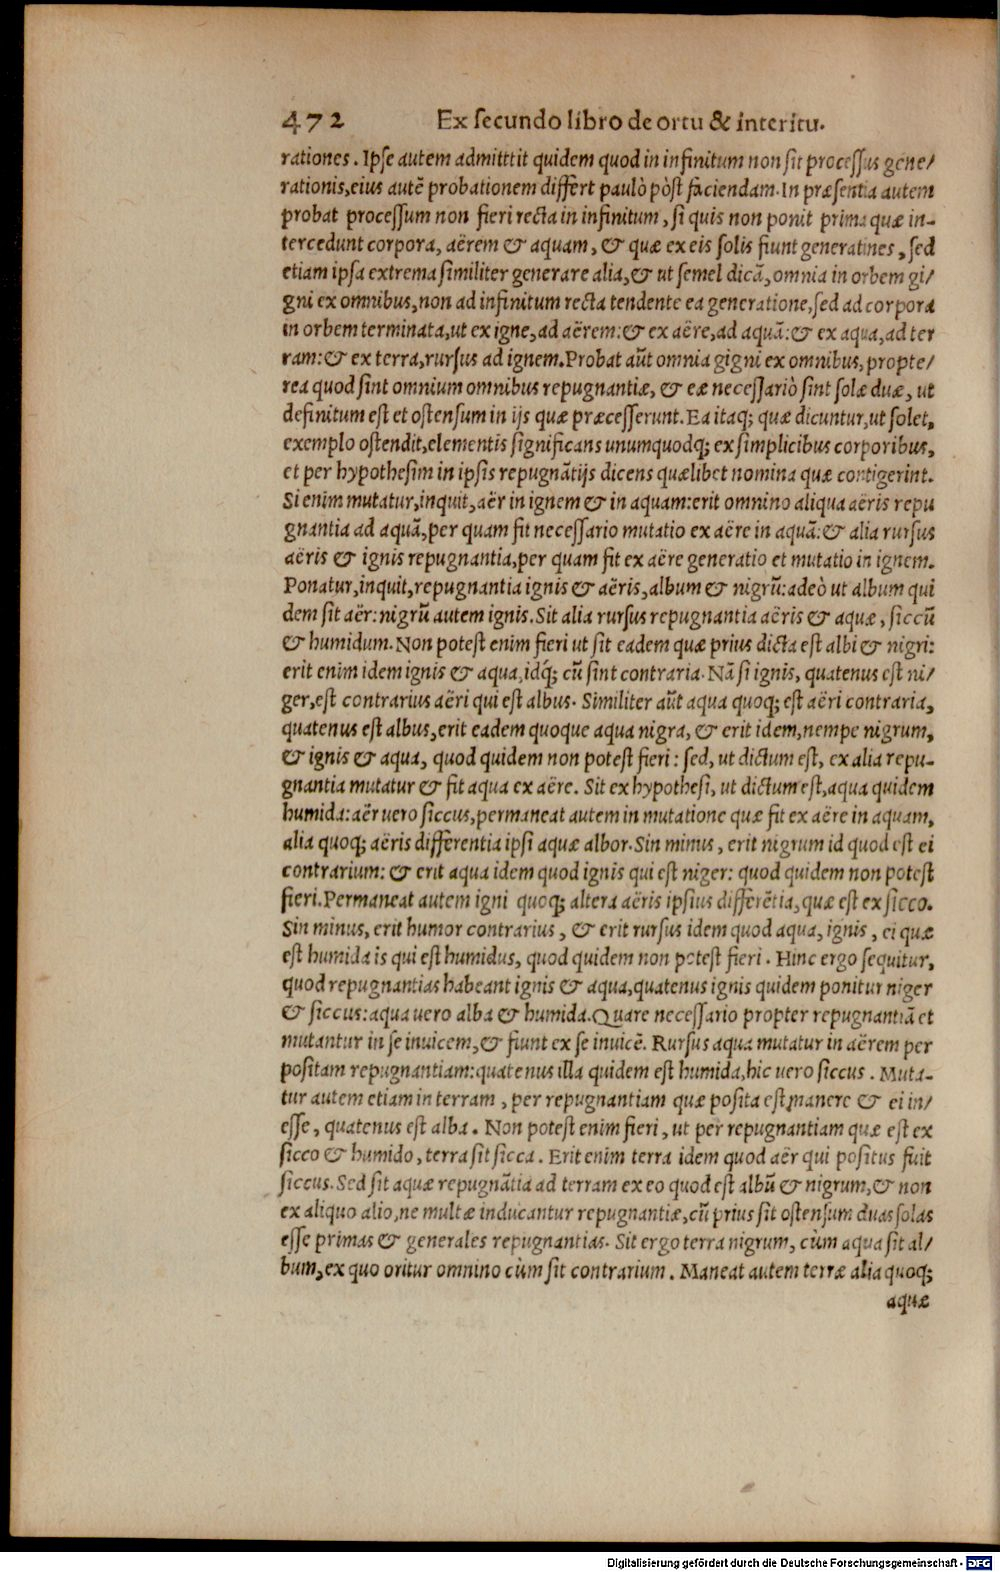 472 Ex secundo libro de ortu & interitu.
rationes. Ipse autem admitttit quidem quod in infinitum non sit processus gene/
rationis, eius autē probationem differt paulò pòst faciendam. In præsentia autem
probat processum non fieri recta in infinitum, si quis non ponit prima quæ in-
tercedunt corpora, aërem & aquam, & quæ ex eis solis fiunt generatines, sed
etiam ipsa extrema similiter generare alia, & ut semel dicā, omnia in orbem gi/
gni ex omnibus, non ad infinitum recta tendente ea generatione, sed ad corpora
in orbem terminata, ut ex igne, ad aërem: & ex aëre, ad aquā: & ex aqua, ad ter
ram: & ex terra, rursus ad ignem. Probat aūt omnia gigni ex omnibus, propte/
rea quod sint omnium omnibus repugnantiæ, & eæ necessariò sint solæ duæ, ut
definitum est et ostensum in ijs quæ præcesserunt. Ea itaq; quæ dicuntur, ut solet,
exemplo ostendit, elementis significans unumquodq; ex simplicibus corporibus,
et per hypothesim in ipsis repugnātijs dicens quælibet nomina quæ contigerint.
Si enim mutatur, inquit, aër in ignem & in aquam: erit omnino aliqua aëris repu
gnantia ad aquā, per quam fit necessario mutatio ex aëre in aquā: & alia rursus
aëris & ignis repugnantia, per quam fit ex aëre generatio et mutatio in ignem.
Ponatur, inquit, repugnantia ignis & aëris, album & nigrū: adeò ut album qui
dem sit aër: nigrū autem ignis. Sit alia rursus repugnantia aëris & aquæ, siccū
& humidum. Non potest enim fieri ut sit eadem quæ prius dicta est albi & nigri:
erit enim idem ignis & aqua, idq́; cū sint contraria. Nā si ignis, quatenus est ni/
ger, est contrarius aëri qui est albus. Similiter aūt aqua quoq; est aëri contraria,
quatenus est albus, erit eadem quoque aqua nigra, & erit idem, nempe nigrum,
& ignis & aqua, quod quidem non potest fieri: sed, ut dictum est, ex alia repu-
gnantia mutatur & fit aqua ex aëre. Sit ex hypothesi, ut dictum est, aqua quidem
humida: aër vero siccus, permaneat autem in mutatione quæ fit ex aëre in aquam,
alia quoq; aëris differentia ipsi aquæ albor. Sin minus, erit nigrum id quod est ei
contrarium: & erit aqua idem quod ignis qui est niger: quod quidem non potest
fieri. Permaneat autem igni quoq; altera aëris ipsius differētia, quæ est ex sicco.
Sin minus, erit humor contrarius, & erit rursus idem quod aqua, ignis, ei quæ
est humida is qui est humidus, quod quidem non potest fieri. Hinc ergo sequitur,
quod repugnantias habeant ignis & aqua, quatenus ignis quidem ponitur niger
& siccus: aqua uero alba & humida. Quare necessario propter repugnantiā et
mutantur in se inuicem, & fiunt ex se inuicē. Rursus aqua mutatur in aërem per
positam repugnantiam: quatenus illa quidem est humida, hic uero siccus. Muta-
tur autem etiam in terram, per repugnantiam quæ posita est, manere & ei in/
esse, quatenus est alba. Non potest enim fieri, ut per repugnantiam quæ est ex
sicco & humido, terra sit sicca. Erit enim terra idem quod aër qui positus fuit
siccus. Sed sit aquæ repugnātia ad terram ex eo quod est albū & nigrum, & non
ex aliquo alio, ne multæ inducantur repugnantiæ, cū prius sit ostensum duas solas
esse primas & generales repugnantias. Sit ergo terra nigrum, cùm aqua sit al/
bum, ex quo oritur omnino cùm sit contrarium. Maneat autem terræ alia quoq;
aquæ
Digitalisierung gefördert durch die Deutsche Forschungsgemeinschaft - DFG